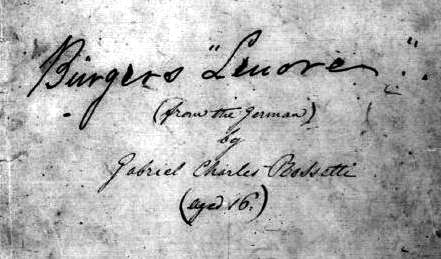 Bürgers "Lenore".
(from the German)
by
Gabriel Charles Rossetti
(aged 16.)